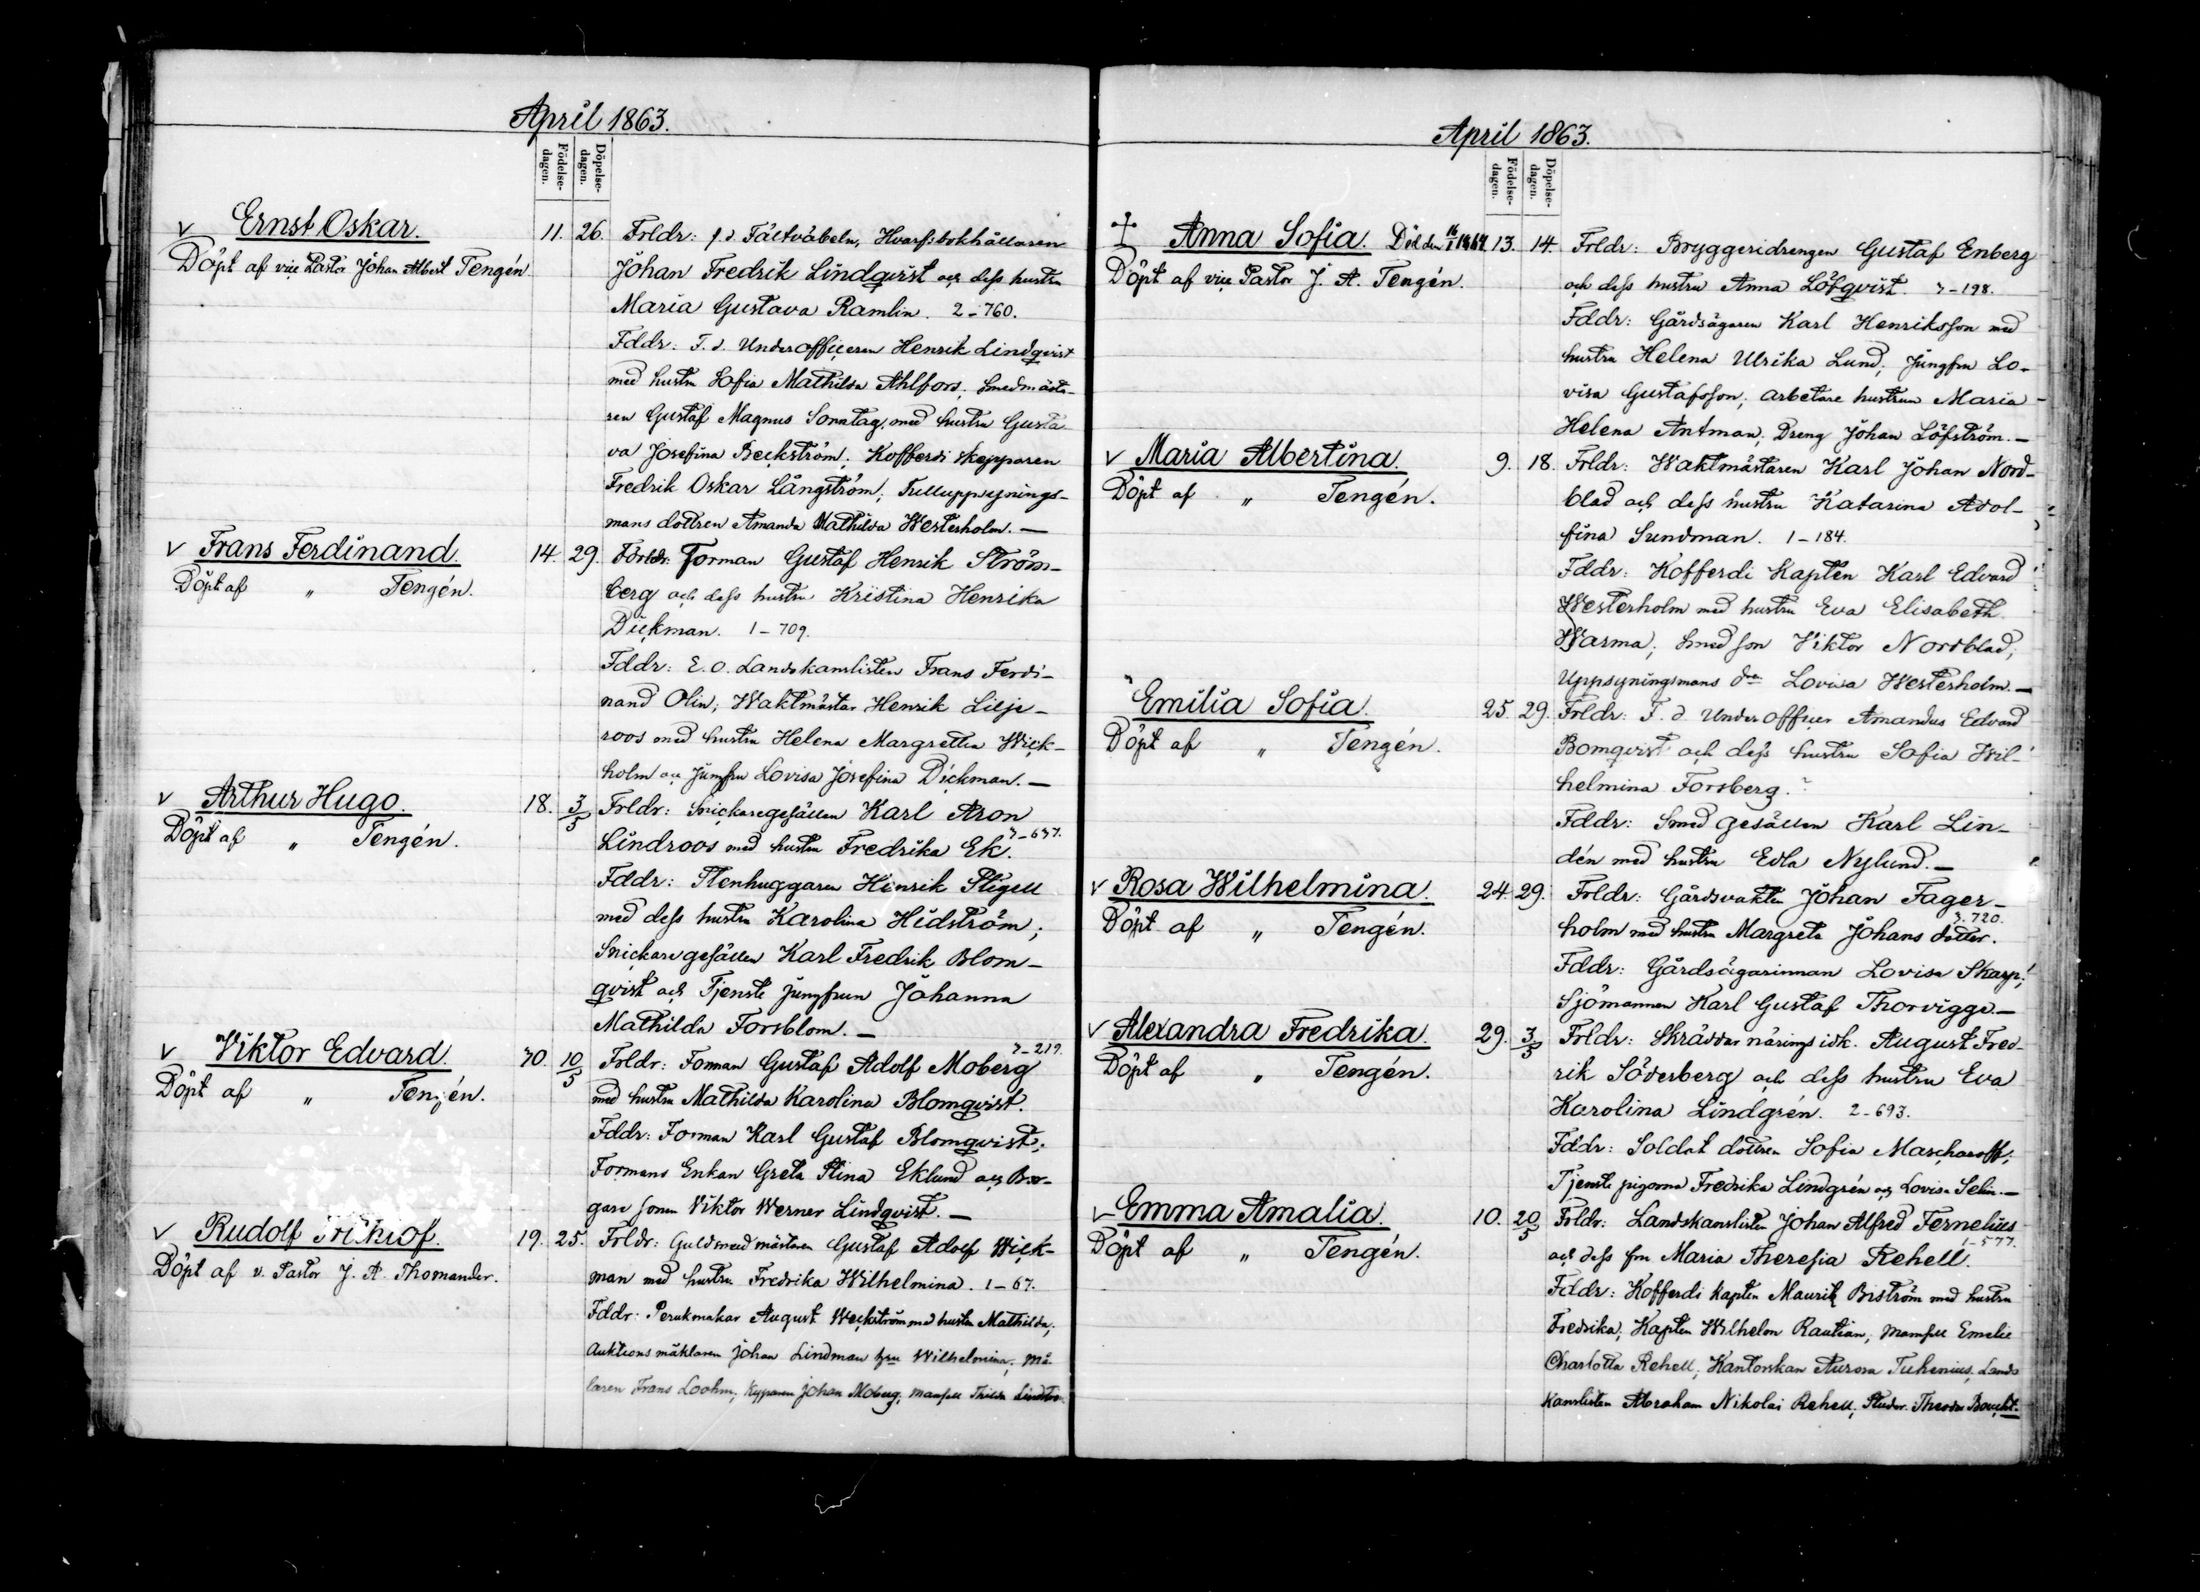 April 1863.
Födelse-dagen.
Döpelse-dagen.
Ernst Oskar.
Döpt af vice Pastor Johan Albert Tengén
11. 26.
Frldr: f. d. Fältväbeln, Hvarfsbokhållaren
Johan Fredrik Lindqvist och dess hustru
Maria Gustava Ramlin. 2-760.
Fddr: F. d. Underofficeren Henrik Lindqvist
med hustru Sofia Mathilda Ahlfors; Smedmästa-
ren Gustaf Magnus Sonntag, med hustru Gusta
va Josefina Beckström; Kofferdi skepparen
Fredrik Oskar Långström; Tulluppsynings-
mans dottren Amanda Mathilda Westerholm. —
v Frans Ferdinand.
Döpt af „ Tengén.
14. 29.
Förldr: Forman Gustaf Henrik Ström-
berg och dess hustru Kristina Henrika
Dickman. 1-709.
Fddr: E. O. Landskanslisten Frans Ferdi-
nand Olin; Waktmästar Henrik Lilje-
roos med hustru Helena Margretha Wick-
holm och Jumfru Lovisa Josefina Dickman. —
v Arthur Hugo.
Döpt af „ Tengén.
18. 3/5
Frldr: Snickaregesällen Karl Aron
Lindroos med hustru Fredrika Ek. 3-637.
Fddr: Stenhuggaren Henrik Stigell
med dess hustru Karolina Hidström;
Snickaregesällen Karl Fredrik Blom-
qvist och Tjenste jungfrun Johanna
Mathilda Forsblom. —
v Viktor Edvard.
Döpt af „ Tengén.
30. 10/5
Frldr: Forman Gustaf Adolf Moberg 3-219.
med hustru Mathilda Karolina Blomqvist.
Fddr: Forman Karl Gustaf Blomqvist;
Formans Enkan Greta Stina Eklund och Bor-
gare sonen Viktor Werner Lindqvist. —
v Rudolf Frithiof.
Döpt af v. Pastor J. A. Thomander.
19. 25.
Frldr: Guldsmedmästaren Gustaf Adolf Wick-
man med hustru Fredrika Wilhelmina. 1-67.
Fddr: Perukmakar August Weckström med hustru Mathilda;
Auktions mäklaren Johan Lindman hru Wilhelmina; Må-
laren Frans Loohm; Kyparen Johan Moberg; Mamsell Thilda
April 1863.
Födelse-dagen.
Döpelse-dagen.
Anna Sofia. Död den 16/1 1864
Döpt af vice Pastor J. A. Tengén.
13. 14.
Frldr: Bryggeridrengen Gustaf Enberg
och dess hustru Anna Löfqvist. 3-198.
Fddr: Gårdsägaren Karl Henriksson med
hustru Helena Ulrika Lund; Jungfru Lo-
visa Gustafsson; arbetare hustrun Maria
Helena Antman; Dreng Johan Löfström. —
v Maria Albertina.
Döpt af „ Tengén.
9. 18.
Frldr: Waktmästaren Karl Johan Nord-
blad och dess hustru Katarina Adol-
fina Sundman. 1-184.
Fddr: Kofferdi Kapten Karl Edvard
Westerholm med hustru Eva Elisabeth
Warma; Smed son Viktor Nordblad;
Uppsyningsmans dr Lovisa Westerholm. —
Emilia Sofia.
Döpt af „ Tengén.
25. 29.
Frldr: F. d. Underofficer Amandus Edvard
Bomqvist och dess hustru Sofia Wil-
helmina Forsberg. ?
Fddr: Smed gesällen Karl Lin-
dén med hustru Edla Nylund. —
v Rosa Wilhelmina.
Döpt af „ Tengén.
24. 29.
Frldr: Gårdsvakten Johan Fager-
holm med hustru Margreta Johans dotter. 3.720.
Fddr: Gårdsägarinnan Lovisa Skarp;
Sjömannen Karl Gustaf Thorvigge. —
v Alexandra Fredrika.
Döpt af „ Tengén.
29. 3/5
Frldr: Skräddar närings idk. August Fred-
rik Söderberg och dess hustru Eva
Karolina Lindgrén. 2-693.
Fddr: Soldat dottren Sofia Mascharoff;
Tjenste pigorna Fredrika Lindgrén och Lovisa Selin. —
v Emma Amalia.
Döpt af „ Tengén.
10. 20/5
Frldr: Landskanslisten Johan Alfred Fernelius
och dess fru Maria Theresia Rehell. 1-577.
Fddr: Kofferdi Kapten Maurik Biström med hustru
Fredrika; Kapten Wilhelm Rautian; Mamsell Emelie
Charlotta Rehell; Kantorskan Aurora Tuhenius; Lands
Kanslisten Abraham Nikolai Rehell; Studer. Theodor Boucht.